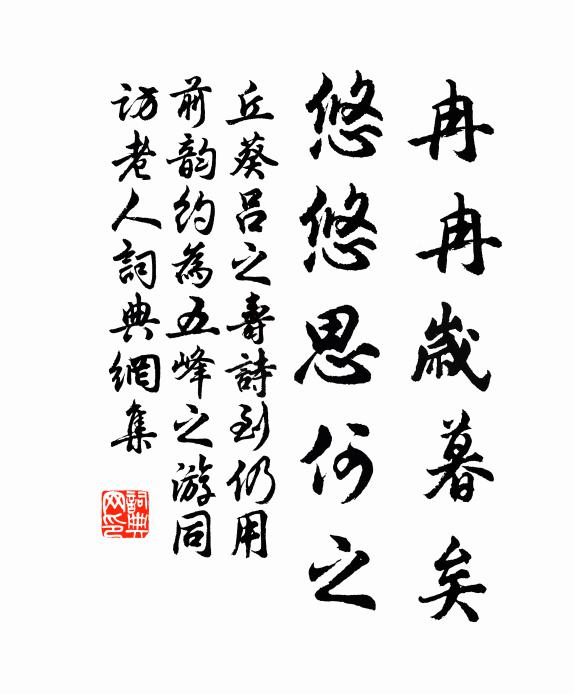 冉冉歲暮矣
悠悠思何之
丘葵呂之壽詩到仍用
前韵約為五峰之游同
訪老人詞典網集
詞典网印